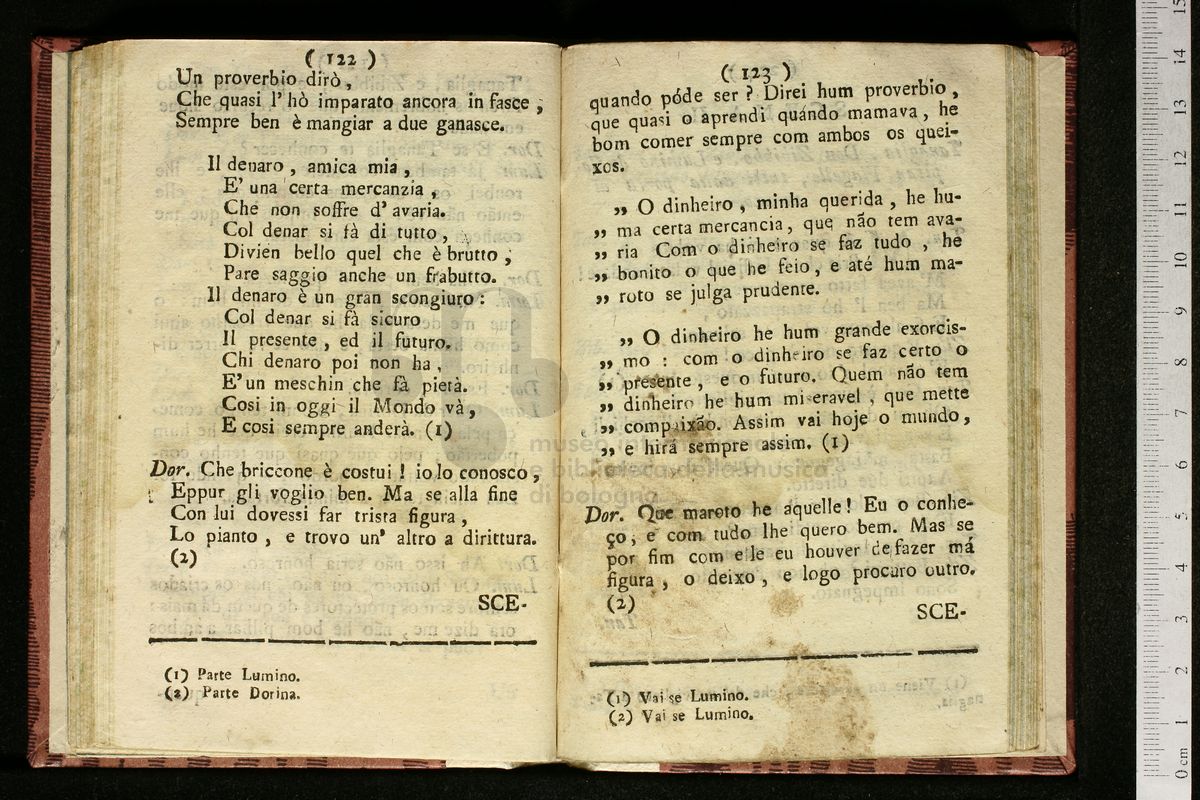 ( 122 )
Un proverbio dirò,
Che quasi l' hò imparato ancora in fasce ;
Sempre ben è mangiar a due ganasce.
Il denaro , amica mia ,
E' una certa mercanzia ,
Che non soffre d' avaria.
Col denar si fà di tutto ,
Divien bello quel che è brutto ,
Pare saggio anche un frabutto.
Il denaro è un gran scongiuro :
Col denar si fà sicuro
Il presente , ed il futuro.
Chi denaro poi non ha ,
E' un meschin che fà pietà.
Cosi in oggi il Mondo và ,
E cosi sempre anderà. (1)
Dor. Che briccone è costui ! io lo conosco ,
Eppur gli voglio ben. Ma se alla fine
Con lui dovessi far trista figura ,
Lo pianto , e trovo un' altro a dirittura.
(2)
SCE-
(1) Parte Lumino.
(2) Parte Dorina.
( 123 )
quando póde ser ? Direi hum proverbio ,
que quasi o aprendi quándo mamava , he
bom comer sempre com ambos os quei-
xos.
„ O dinheiro , minha querida , he hu-
„ ma certa mercancia , que não tem ava-
„ ria Com o dinheiro se faz tudo , he
„ bonito o que he feio , e até hum ma-
„ roto se julga prudente.
„ O dinheiro he hum grande exorcis-
„ mo : com o dinheiro se faz certo o
„ presente , e o futuro. Quem não tem
„ dinheiro he hum miseravel , que mette
„ compaixão. Assim vai hoje o mundo ,
„ e hirá sempre assim. (1)
Dor. Que maroto he aquelle ! Eu o conhe-
ço , e com tudo lhe quero bem. Mas se
por fim com elle eu houver de fazer má
figura , o deixo , e logo procuro outro.
(2)
SCE-
(1) Vai se Lumino.
(2) Vai se Lumino.
museo internazionale
e biblioteca della musica
di bologna
15
14
13
12
11
10
9
8
7
6
5
4
3
2
1
0 cm